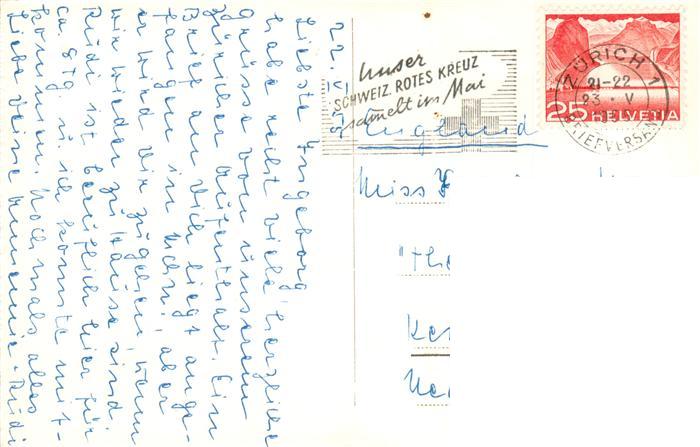 22. V.
Liebste Ingeborg,
habe recht viele herzliche
Grüsse von unserem
Zürcher Aufenthalt. Ein
Brief an Dich liegt ange-
fangen in mein, aber
er wird Dir zugehen, wenn
wir wieder zu Hause sind.
Rudi ist beruflich hier für
ca. 8 Tg. u. ich konnte mit-
kommen. Nochmals alles
Liebe Deine Annemie + Rudi
Unser
SCHWEIZ. ROTES KREUZ
sammelt im Mai
ZÜRICH 1
21-22
23. V
BRIEFVERSAND
25 HELVETIA
England
Miss
"The
Ke